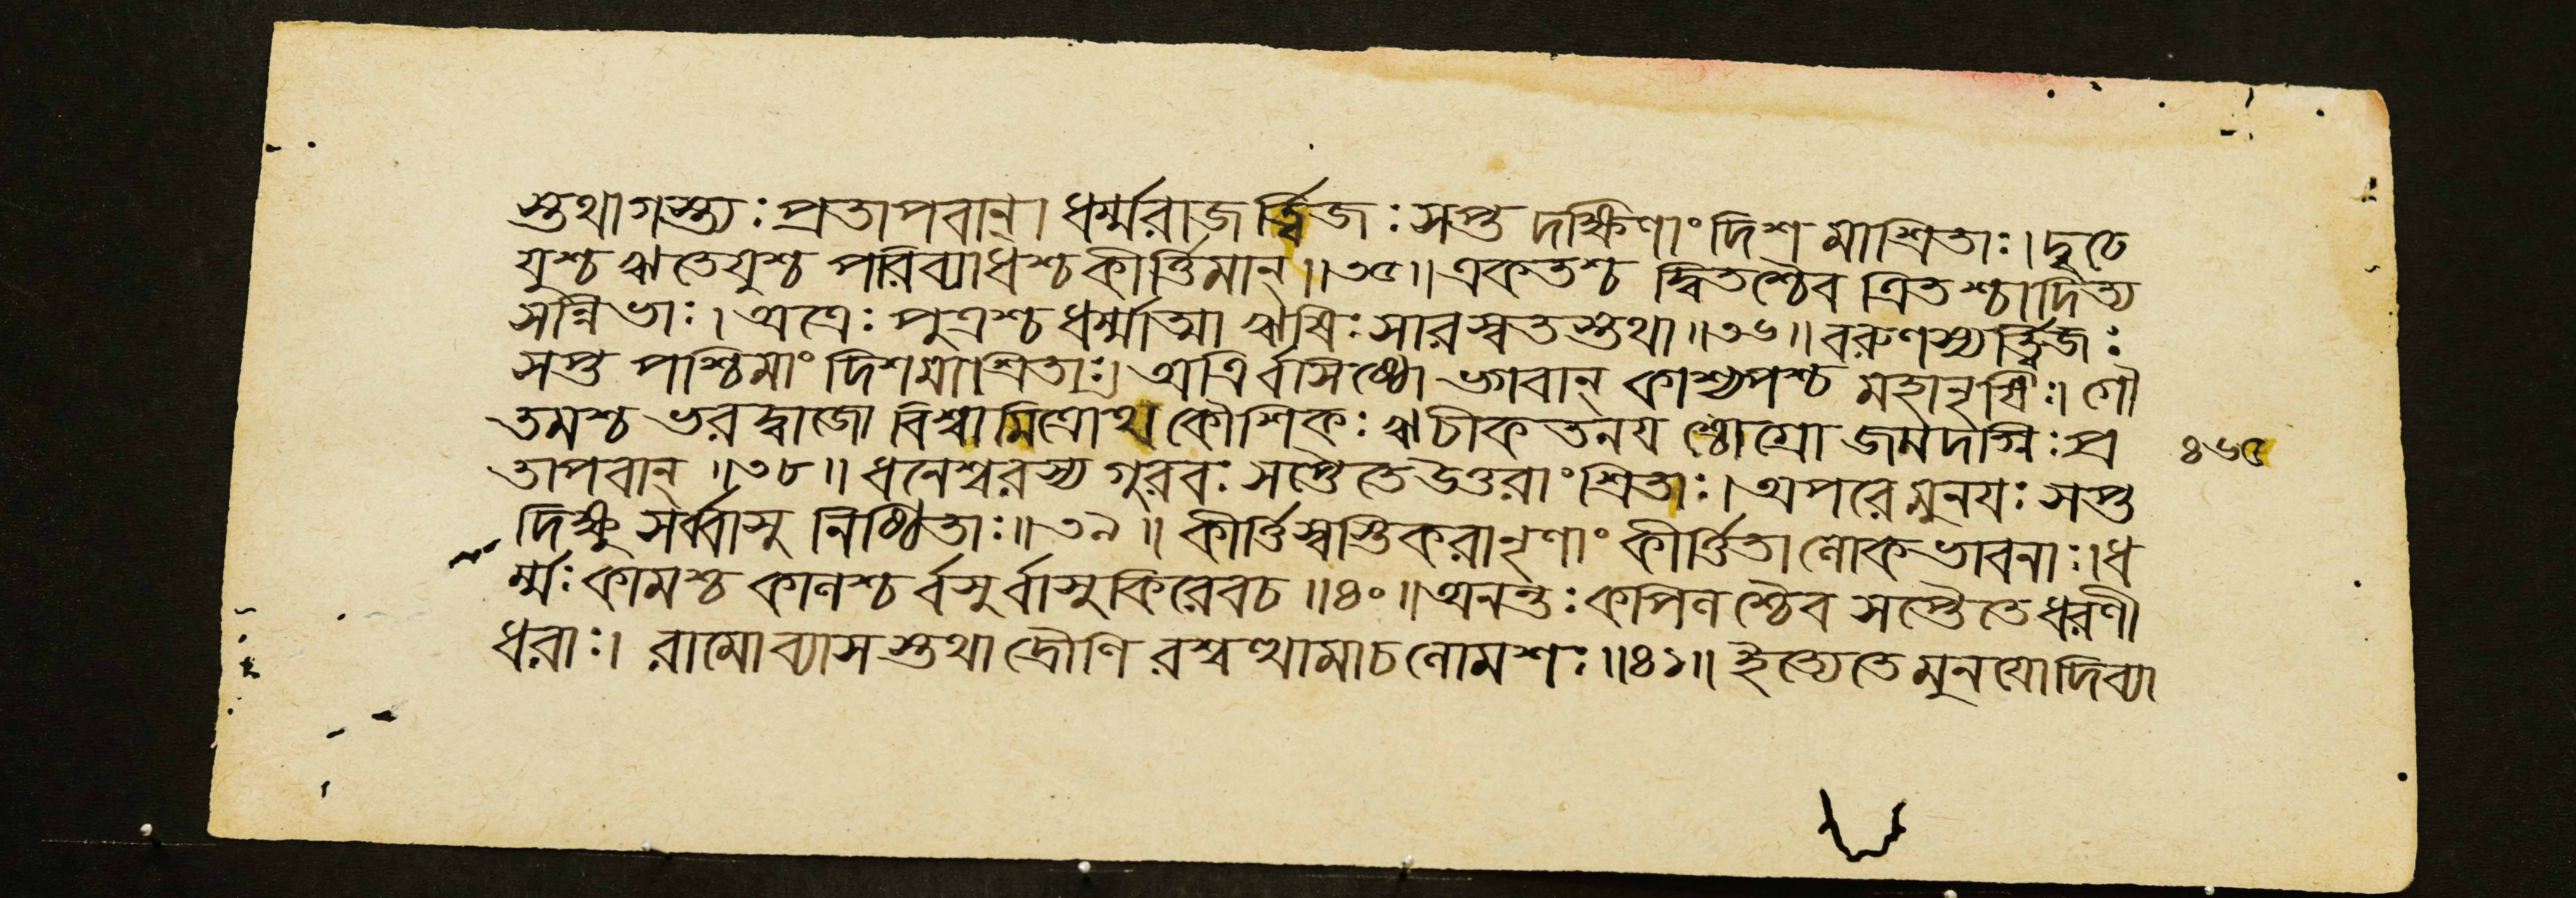 স্তথাগস্ত্যঃ প্রতাপবান্। ধর্ম্মরাজর্ত্ত্বিজঃ সপ্ত দক্ষিণাং দিশমাশ্রিতাঃ। দৃঢে
যুশ্চ ঋতেযুশ্চ পরিব্যাধশ্চ কীর্ত্তিমান্॥৩৫॥ একতশ্চ দ্বিতশ্চৈব ত্রিতশ্চাদিত্য
সন্নিভাঃ। অত্রেঃ পুত্রশ্চ ধর্ম্মাত্মা ঋষিঃ সারস্বতস্তথা॥৩৬॥ বরুণস্যর্ত্ত্বিজঃ
সপ্ত পশ্চিমাং দিশমাশ্রিতাঃ। অত্রির্বসিষ্ঠো ভগবান্ কাশ্যপশ্চ মহানৃষিঃ। গৌ
তমশ্চ ভরদ্বাজো বিশ্বামিত্রোথ কৌশিকঃ ঋচীকতনযশ্চোগ্রো জমদগ্নিঃ প্র
তাপবান্॥৩৮॥ ধনেশ্বরস্য গুরবঃ সপ্তৈতে উত্তরাং শ্রিতাঃ। অপরে মুনযঃ সপ্ত
দিক্ষু সর্ব্বাসু নিষ্ঠিতাঃ॥৩৯॥ কীর্ত্তিস্বস্তিকরানৃণাং কীর্ত্তিতা লোকভাবনাঃ। ধ
র্ম্মঃ কামশ্চ কালশ্চ র্বসুর্বাসুকিরেবচ॥৪০॥ অনন্তঃ কপিলশ্চৈব সপ্তৈতে ধরণী
ধরাঃ। রামোব্যাসস্তথা দ্রৌণিরশ্বত্থামাচ লোমশঃ॥৪১॥ ইত্যেতে মুনযোদিব্যা
৪৬৫